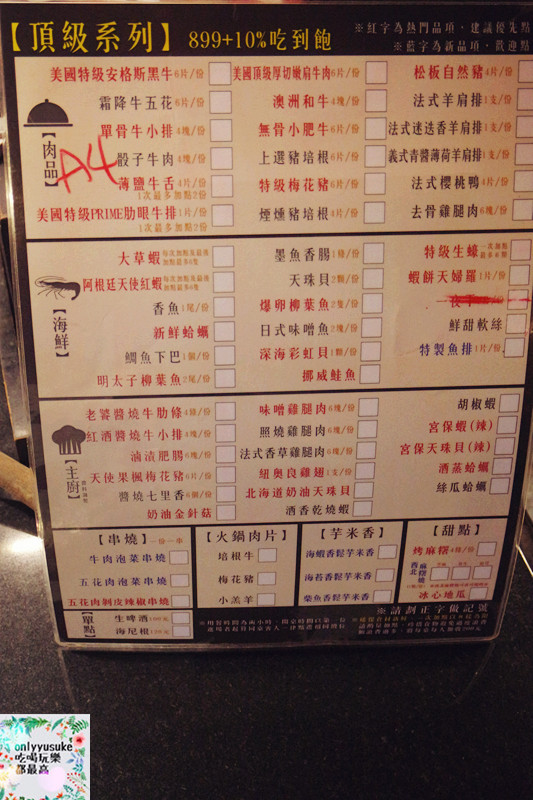 【頂級系列】 899+10%吃到飽
※紅字為熱門品項、建議優先點
※藍字為新品項、歡迎點
【肉品】
A4
美國特級安格斯黑牛6片/份
霜降牛五花6片/份
單骨牛小排4塊/份
骰子牛肉4塊/份
薄鹽牛舌4片/份
1次最多加點2份
美國特級PRIME肋眼牛排1片/份
1次最多加點2份
美國頂級厚切嫩肩牛肉6片/份
澳洲和牛4片/份
無骨小肥牛6片/份
上選豬培根6片/份
特級梅花豬6片/份
煙燻豬培根4片/份
松板自然豬4片/份
法式羊肩排1支/份
法式迷迭香羊肩排1支/份
義式青醬薄荷羊肩排1支/份
法式櫻桃鴨4片/份
去骨雞腿肉6塊/份
【海鮮】
大草蝦
阿根廷天使紅蝦
香魚1尾/份
新鮮蛤蠣
鯛魚下巴1個/份
明太子柳葉魚2尾/份
墨魚香腸1條/份
天珠貝2顆/份
爆卵柳葉魚2隻/份
日式味噌魚2塊/份
深海彩虹貝1顆/份
挪威鮭魚
特級生蠔
蝦餅天婦羅1片/份
鮮甜軟絲
特製魚排1片/份
【主廚】
老饕醬燒牛肋條4條/份
紅酒醬燒牛小排4塊/份
滷漬肥腸6塊/份
天使果楓梅花豬6片/份
醬燒七里香6個/份
奶油金針菇
味噌雞腿肉6塊/份
照燒雞腿肉6塊/份
法式香草雞腿肉6塊/份
紐奧良雞翅1支/份
北海道奶油天珠貝
酒香乾燒蝦
胡椒蝦
宮保蝦(辣)
宮保天珠貝(辣)
酒蒸蛤蠣
絲瓜蛤蠣
【串燒】一份一串
牛肉泡菜串燒
五花肉泡菜串燒
五花肉剝皮辣椒串燒
【火鍋肉片】
培根牛
梅花豬
小羔羊
【芋米香】
海蝦香鬆芋米香
海苔香鬆芋米香
柴魚香鬆芋米香
【甜點】
烤麻糬4條/份
冰心地瓜
【單點】
生啤酒
海尼根
※請劃正字做記號
onlyyusuke
吃喝玩樂
都最高